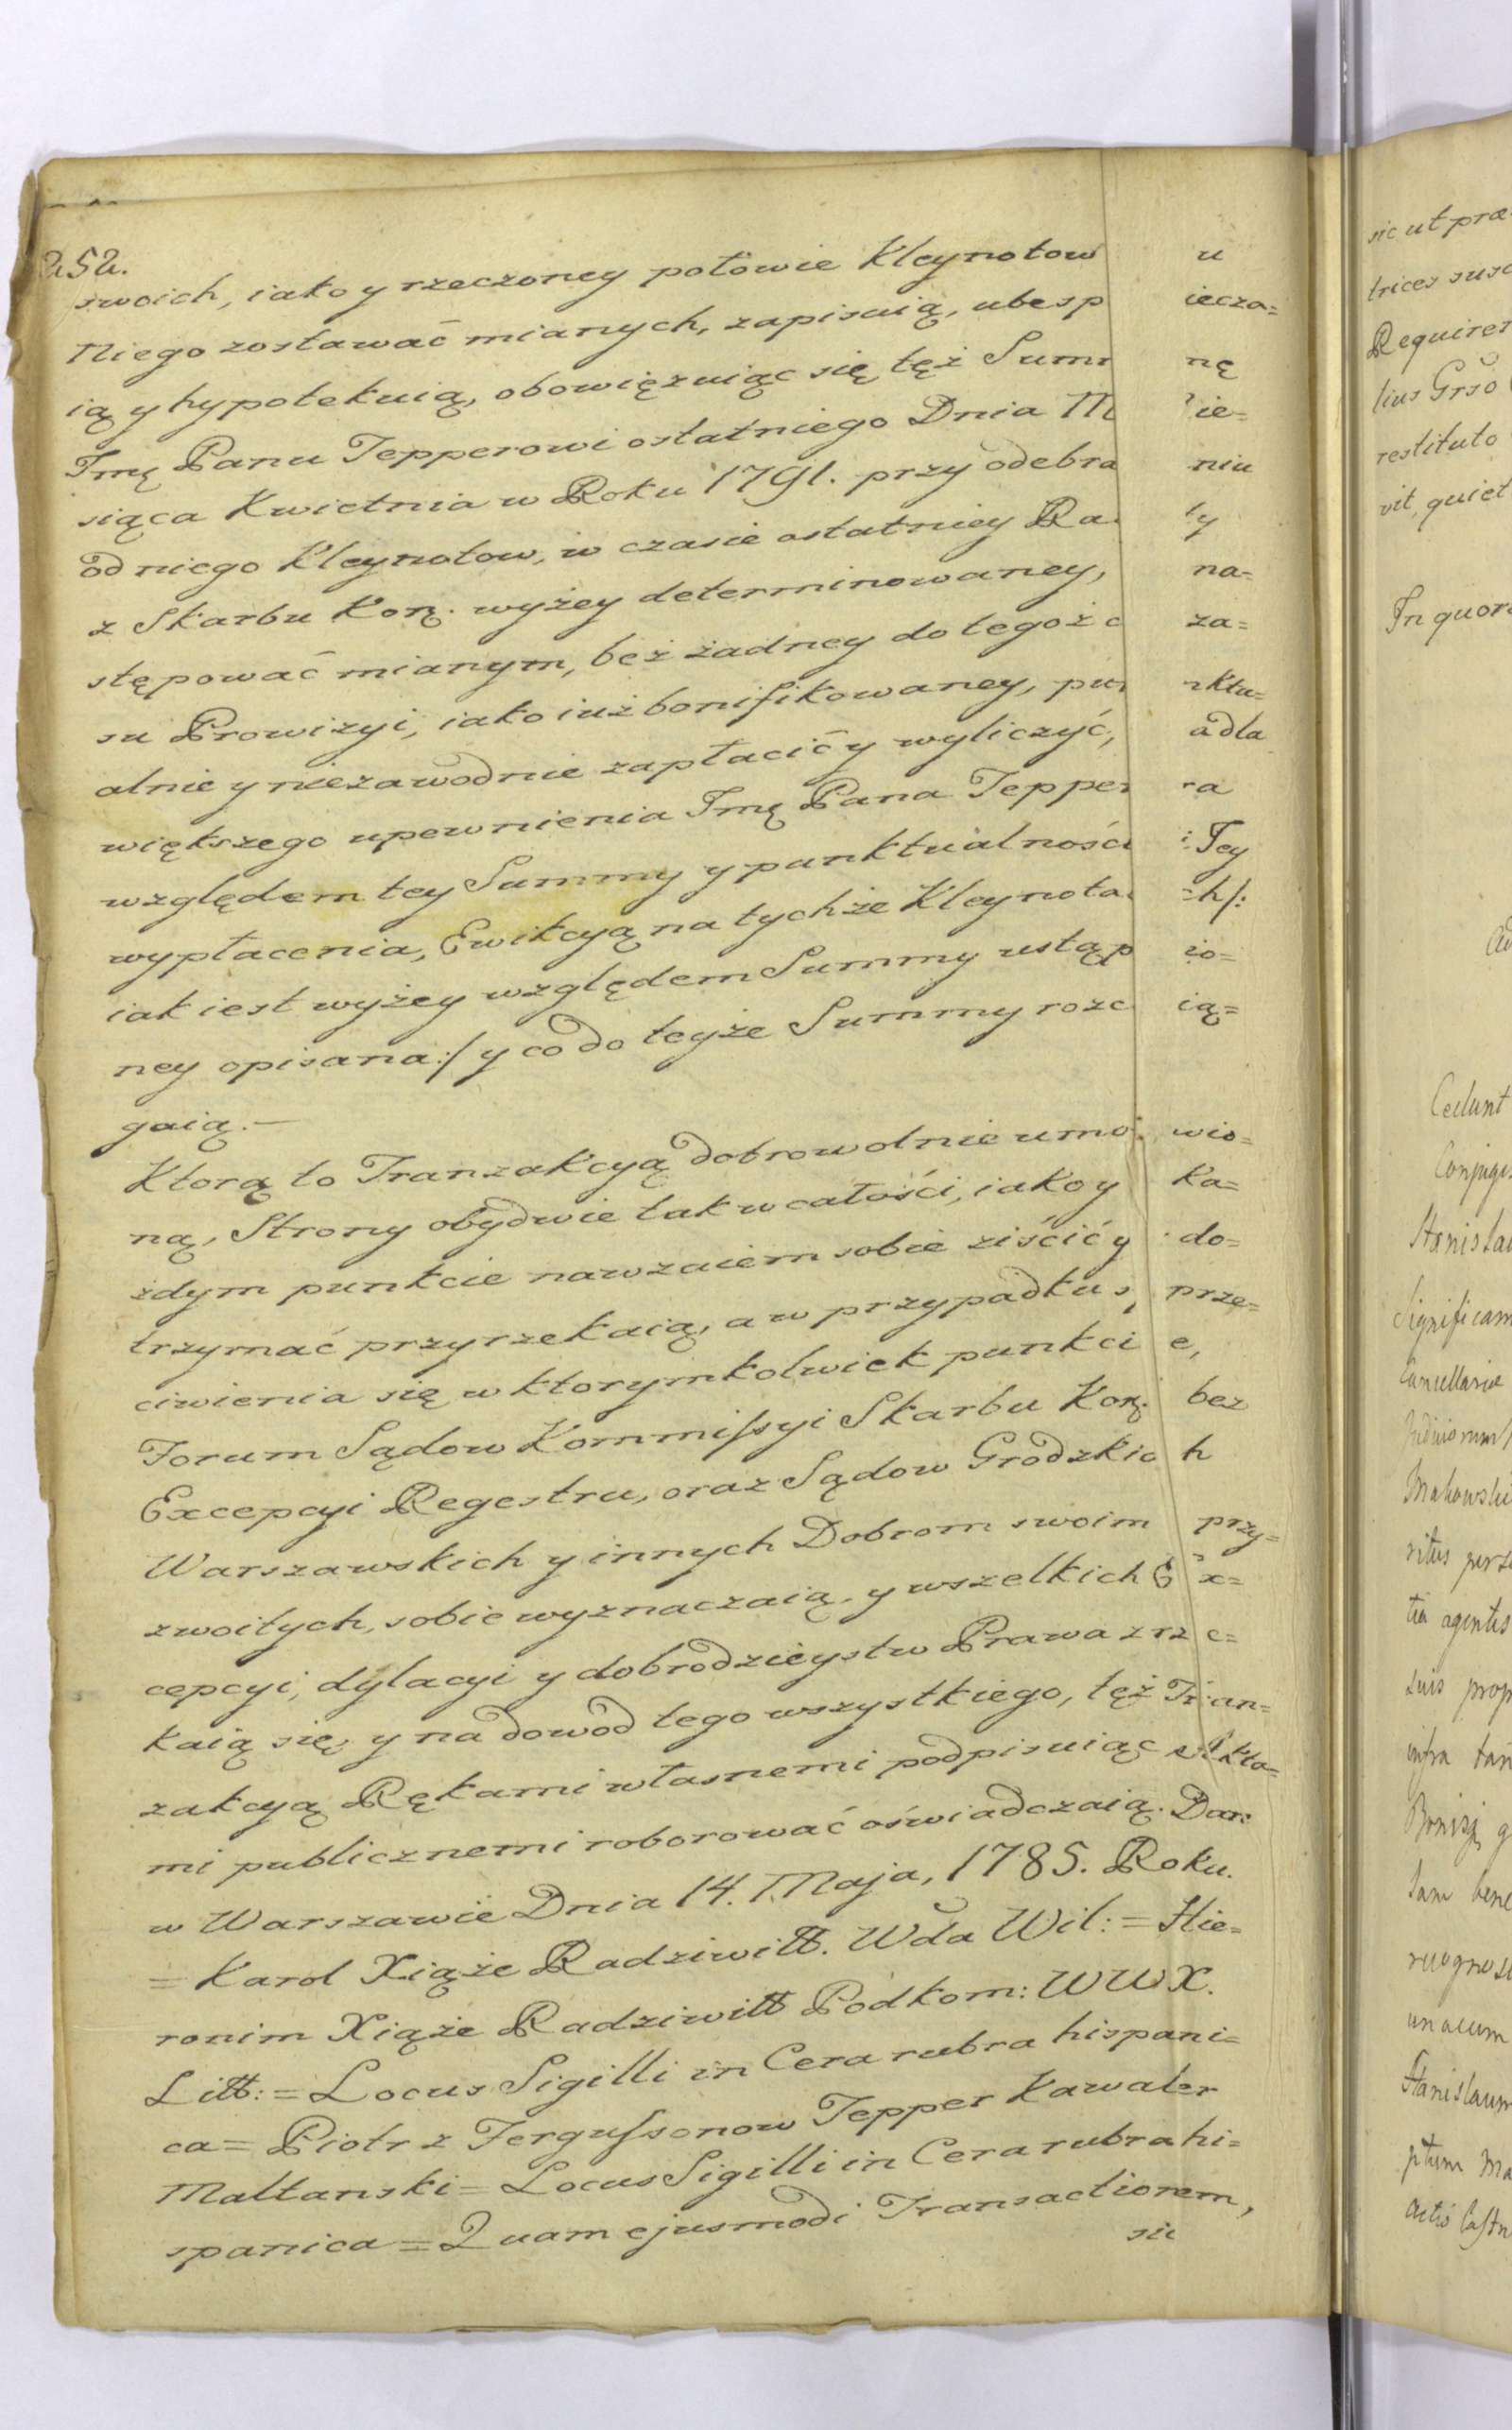 252.
swoich, iako y rzeczoney połowie Kleynotow u
Niego zostawać mianych, zapisuią, ubesp iecza=
ią y hypotekuią, obowięzuiąc się tęż Sum nę
Jmę Panu Tepperowi ostatniego Dnia M ie=
siąca Kwietnia w Roku 1791. przy odebra niu
od niego Kleynotow, w czasie ostatniey Ra ty
z Skarbu Kor. wyżey determinowaney, na=
stępować mianym, bez żadney do tegoż c za=
su Prowizyi, iako iuż bonifikowaney, pun ktu=
alnie y niezawodnie zapłacić y wyliczyć, a dla
większego upewnienia Jmę Pana Teppe ra
względem tey Summy y punktualności Jey
wypłacenia, Ewikcyą na tychże Kleynota =h/:
iak iest wyżey względem Summy ustąp io=
ney opisana:/ y co do teyże Summy rozc ią=
gaią.—
Ktorą to Tranzakcyą dobrowolnie umo wio=
ną, Strony obydwie tak w całości, iako y ka=
żdym punkcie nawzaiem sobie ziścić y do=
trzymać przyrzekaią, a w przypadku s prze=
ciwienia się w ktorymkolwiek punkci e,
Forum Sądow Kommissyi Skarbu Kor. bez
Excepcyi Regestru, oraz Sądow Grodzkic h
Warszawskich y innych Dobrom swoim przy=
zwoitych, sobie wyznaczaią, y wszelkich E x=
cepcyi, dylacyi y dobrodzieystw Prawa zrz e=
kaią się, y na dowod tego wszystkiego, tęż Tr an=
zakcyą Rękami własnemi podpisuiąc Akta=
mi publicznemi roborować oświadczaią. Dan:
w Warszawie Dnia 14. Maja, 1785. Roku.
= Karol Xiąże Radziwiłł. Wda Wil: = Hie=
ronim Xiąże Radziwiłł Podkom: WWX.
Litt: = Locus Sigilli in Cera rubra hispani=
ca = Piotr z Fergussonow Tepper Kawaler
Maltanski = Locus Sigilli in Cera rubra hi=
spanica = Quam ejusmodi Transactionem,
sic
sic ut præ
trices susc
Requiren
lius Grso
restituto
vit, quiet
In quor
Cedunt
Conjuge
Stanislau
Significam
Cancellariæ
Makowski
ritus perso
tia agentis
suis prop
infra tan
Bonis q
tam bene
unacum
Stanislaum
ptum Ma
Actis Castr